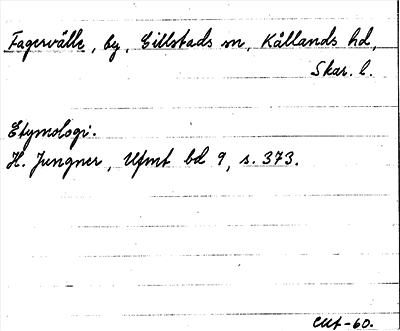 Fagervälle, by, Gillstads sn, Kållands hd,
Skar. l.
Etymologi:
H. Jungner, Ufmt bd 9, s. 373.
CUt-60.